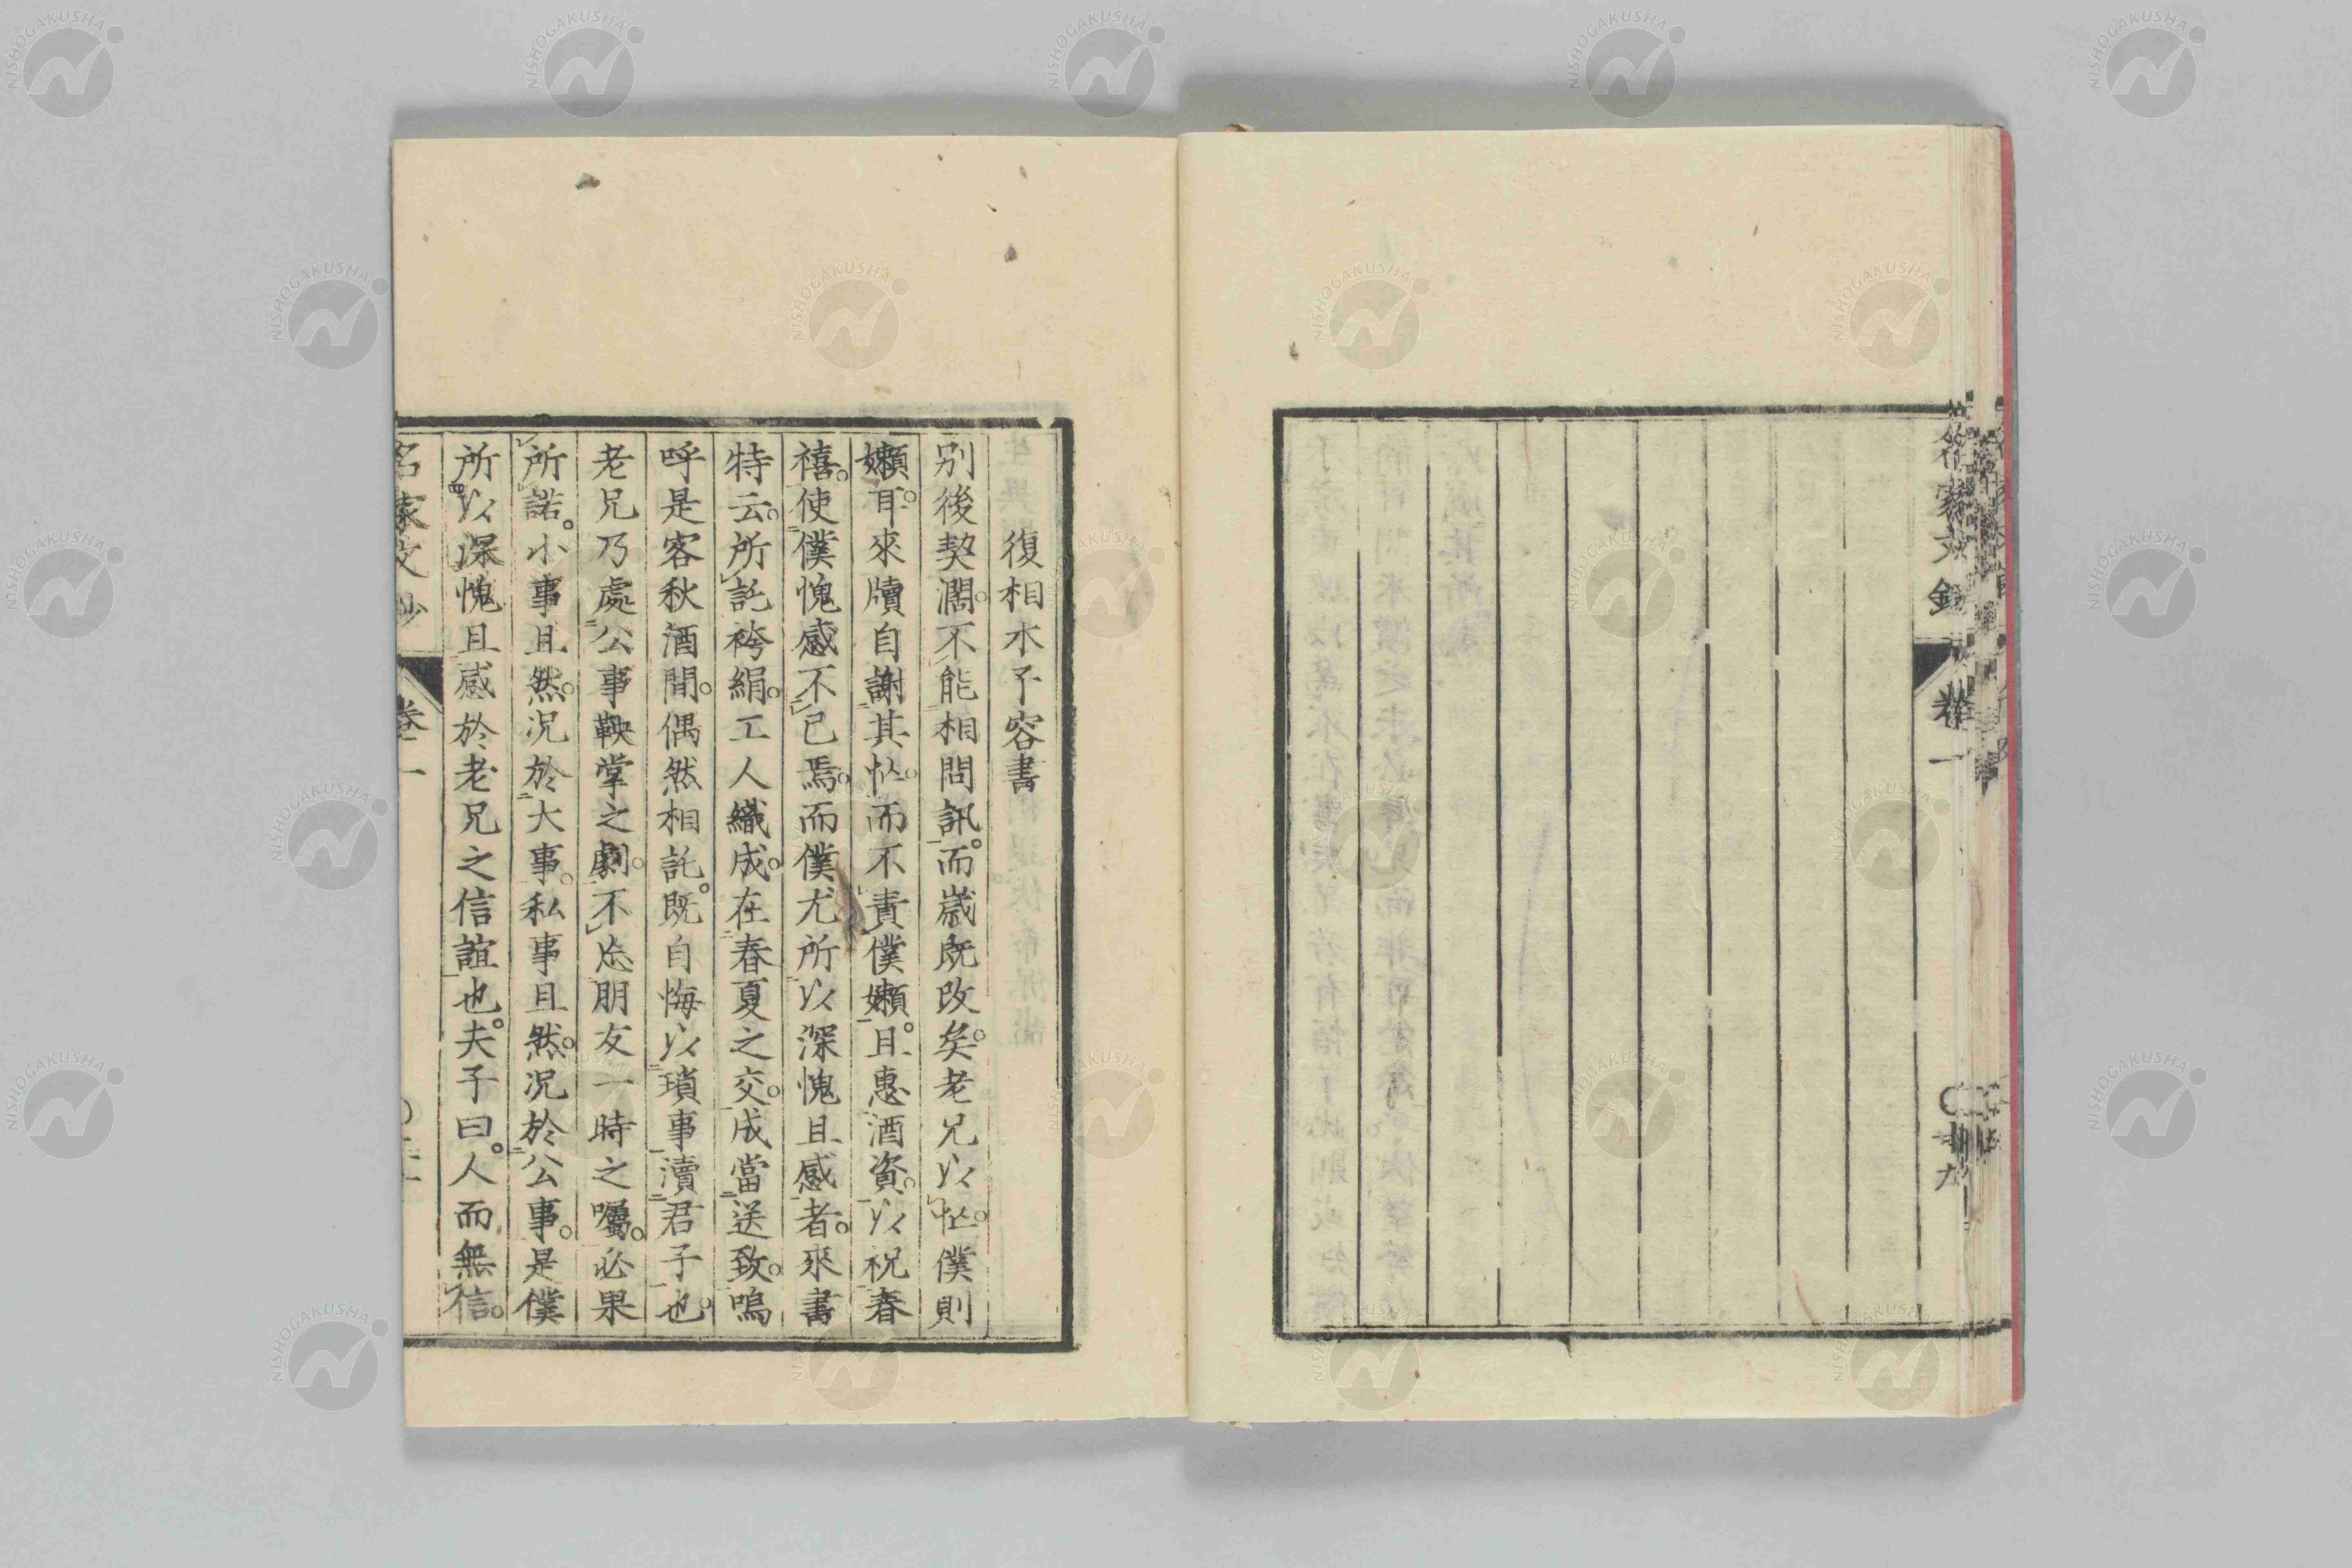 復相木予容書
別後契濶。不能相問訊。而歳既改矣。老兄以忙。僕則
嬾耳。來牘自謝其忙。而不責僕嬾。且惠酒資。以祝春
禧。使僕愧感不已焉。而僕尤所以深愧且感者。來書
特云。所託袴絹。工人織成。在春夏之交。成當送致。嗚
呼是客秋酒間。偶然相託。既自悔以瑣事瀆君子也。
老兄乃處公事鞅掌之劇。不忘朋友一時之囑。必果
所諾。小事且然。况於大事。私事且然。况於公事。是僕
所以深愧且感於老兄之信誼也。夫子曰。人而無信。
名家文抄
卷一
NISHOGAKUSHA